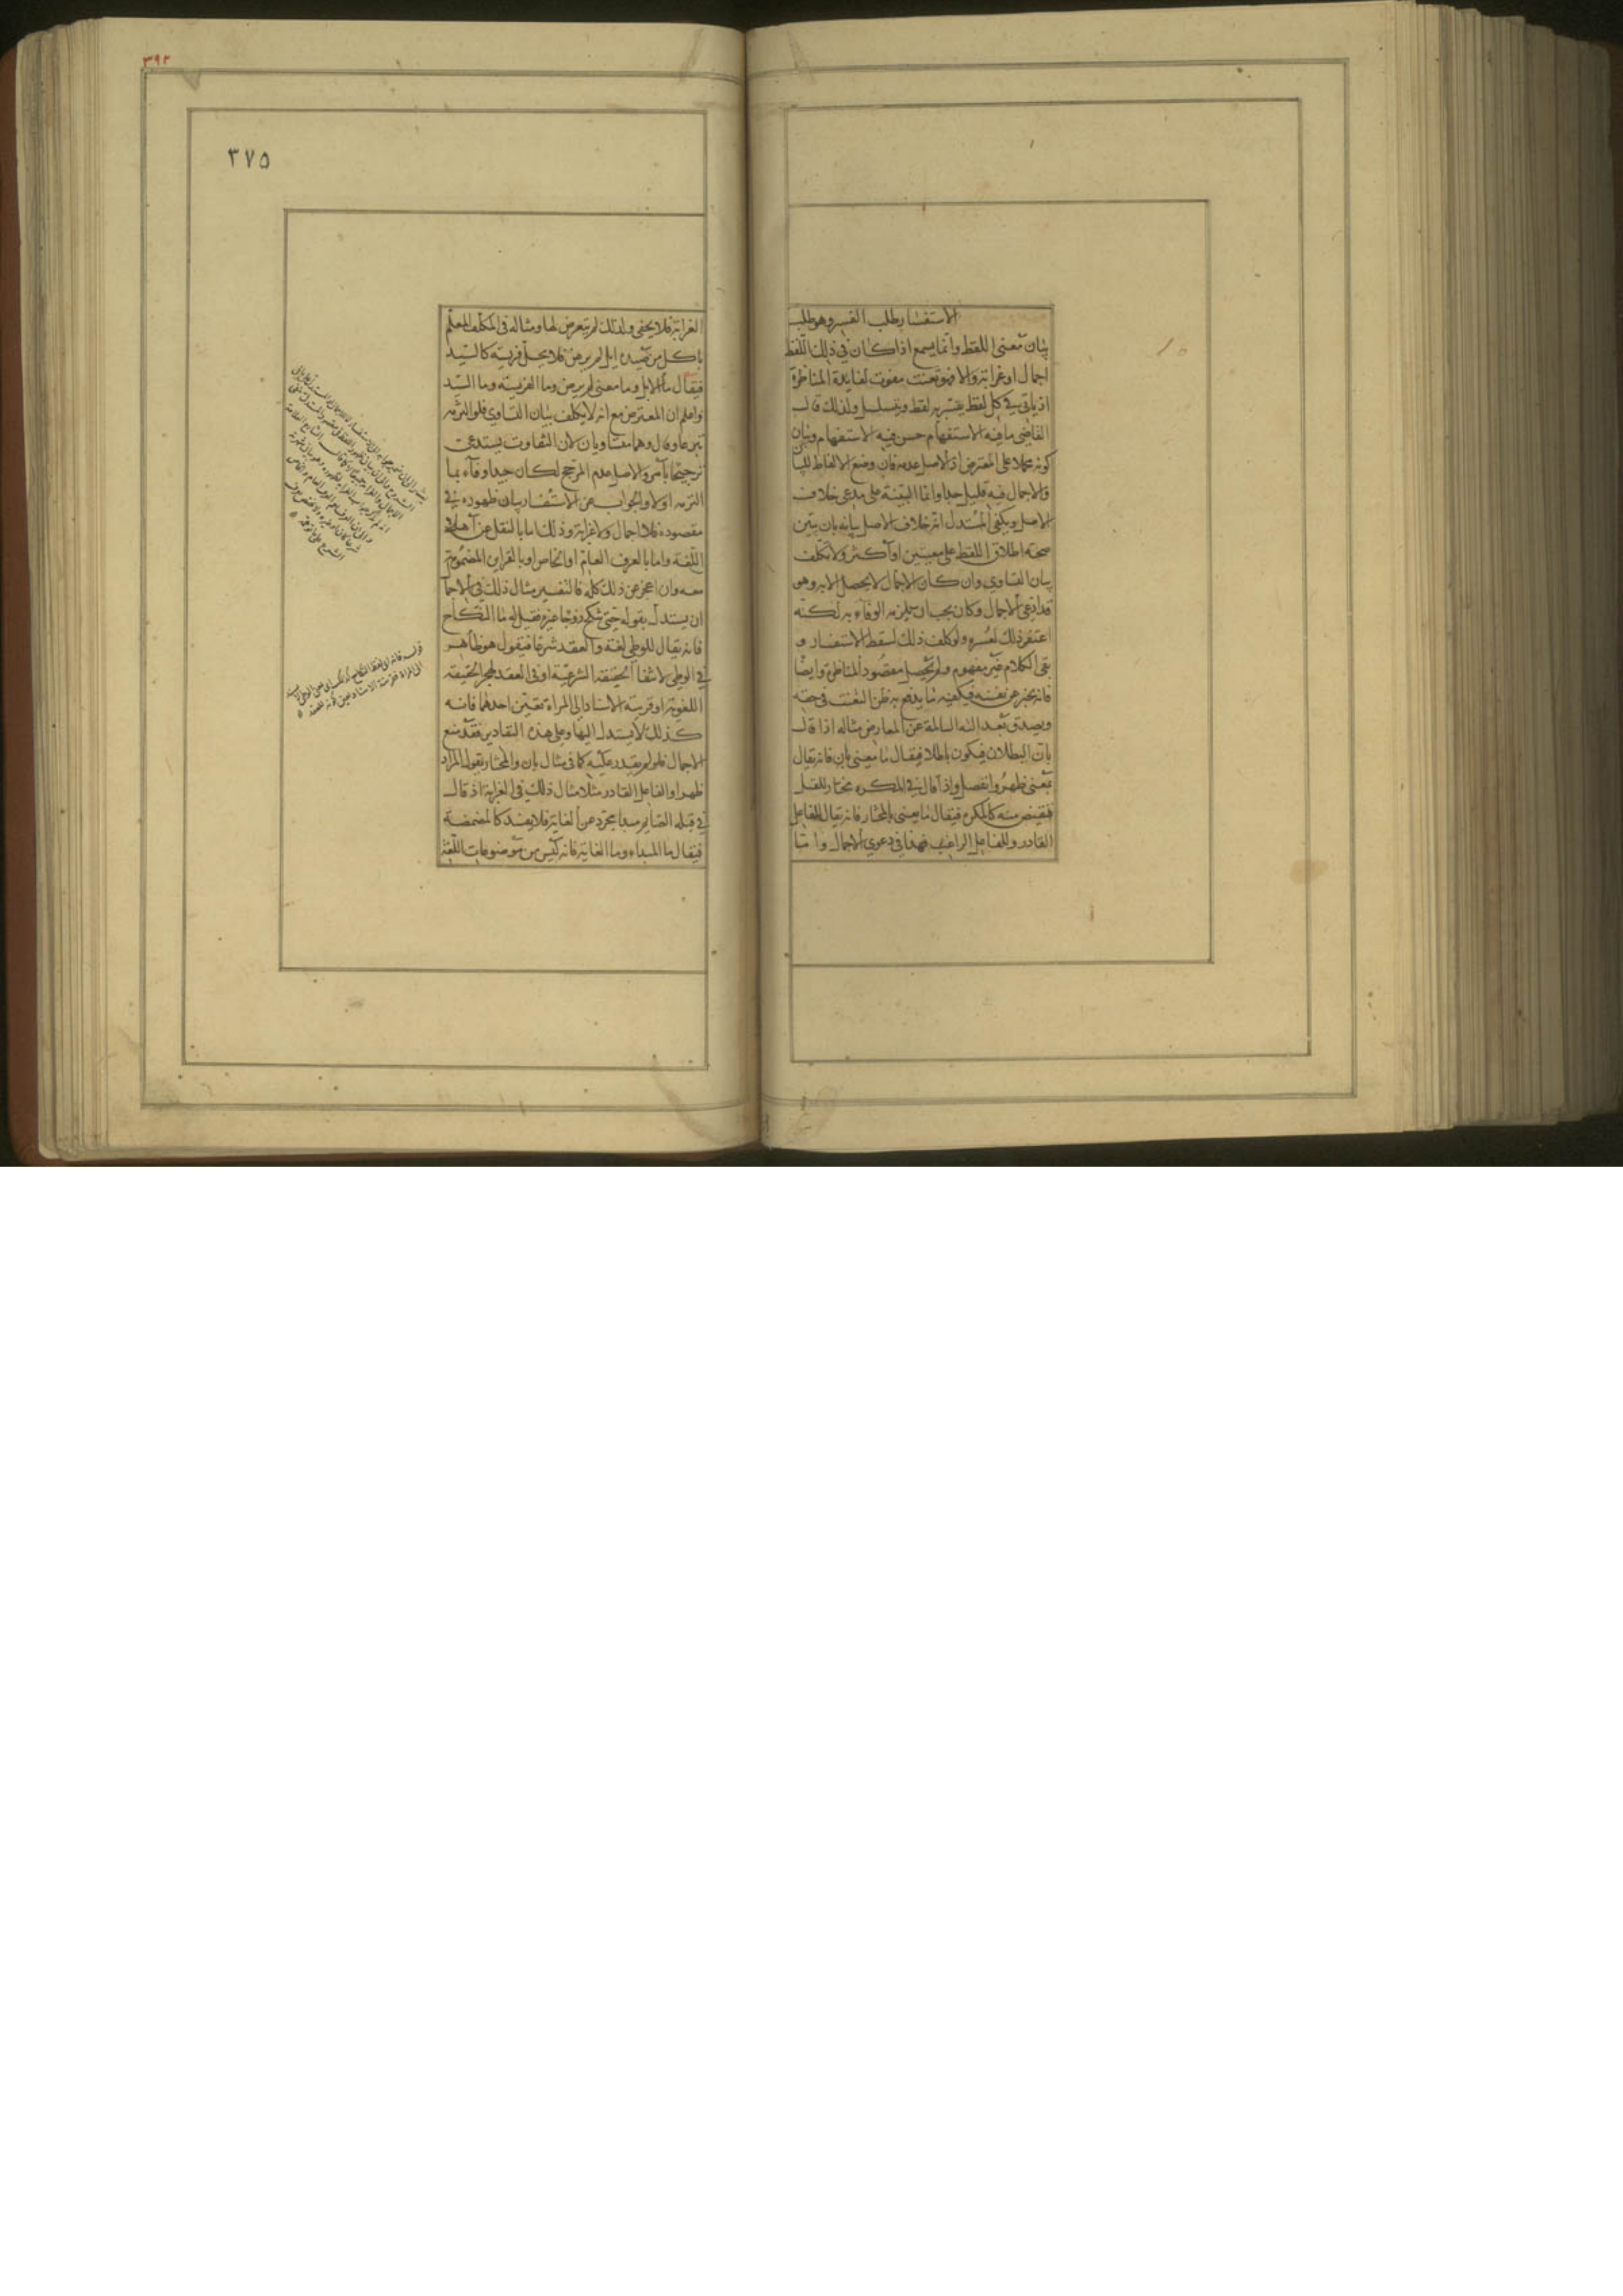 الاستفسار طلب الفسر وهو طلب
بيان معنى اللفظ وانما يسمع اذا كان في ذلك اللفظ
اجمال او غرابة والا فهو تعنت مفوت لفايدة المناظرة
اذ ياتي في كل لفظ يفسر به لفظ ويتسلسل ولذلك قال
القاضي ما فيه الاستفهام حسن فيه الاستفهام وبيان
كونه مجملا على المعترض اذ الاصل عدمه فان وضع الالفاظ للبيان
والاجمال فيه قليل جدا وانما البينة على مدعي خلاف
الاصل ويكفي المستدل انه خلاف الاصل بيانه بان يبين
صحة اطلاق اللفظ على معنيين او اكثر ولا يكلف
بيان التساوي وان كان الاجمال لا يحصل الا به وهو
قد ادعى الاجمال وكان يجب ان يلزمه الوفاء به لكنه
اغتفر ذلك لعسره ولو كلف ذلك لسقط الاستفسار و
بقي الكلام غير مفهوم ولم يحصل مقصود المناظرة وايضا
فانه يخبر عن نفسه فيكفيه ما يدفع به ظن التعنت في حقه
ويصدق بعدالته السالمة عن المعارض مثاله اذا قال
بان البطلان فيكون باطلا فيقال ما معنى بان فانه يقال
بمعنى ظهر وانفصل واذا قال في المكره مختار للقتل
فيقتص منه كالمكره فيقال ما يعنى بالمختار فانه يقال للفاعل
القادر وللفاعل الراغب فهذا في دعوى الاجمال واما
٣٩٢
٣٧٥
الغرابة فلا يخفى ولذلك لم يتعرض لها ومثاله في الكلب المعلم
ياكل من صيده ايل لم يرض فلا يحل فريسته كالسيد
فيقال ما الايل وما معنى لم يرض وما الفريسة وما السيد
واعلم ان المعترض مع انه لا يكلف بيان التساوي فلو التزمه
تبرعا وقال وهما متساويان لان التفاوت يستدعي
ترجيحا بامر والاصل عدم المرجح لكان جيدا وفاء بما
التزمه اولا والجواب عن الاستفسار بيان ظهوره في
مقصوده فلا اجمال ولا غرابة وذلك اما بالنقل عن اهل
اللغة واما بالعرف العام او الخاص او بالقراين المضمومة
معه وان عجز عن ذلك كله فالتفسير مثال ذلك في الاجمال
ان يستدل بقوله حتى تنكح زوجا غيره فقيل له ما النكاح
فانه يقال للوطي لغة والعقد شرعا فيقول هو ظاهر
في الوطي لانتفا الحقيقة الشرعية او في العقد لهجر الحقيقة
اللغوية او قرينة الاسناد الى المراة تعين احدهما فانه
كذلك لا يستند اليها وعلى هذه التقادير فقد منع
الاجمال فلو لم يقدر عليه كما في مثال بان والمختار يقول المراد
ظهر او الفاعل القادر مثلا مثال ذلك في الغرابة اذ قال
في قبلة الصايم مبدا مجرد عن الغاية فلا يفسد كالمضمضة
فيقال ما المبداء وما الغاية فانه ليس من موضوعات اللغة